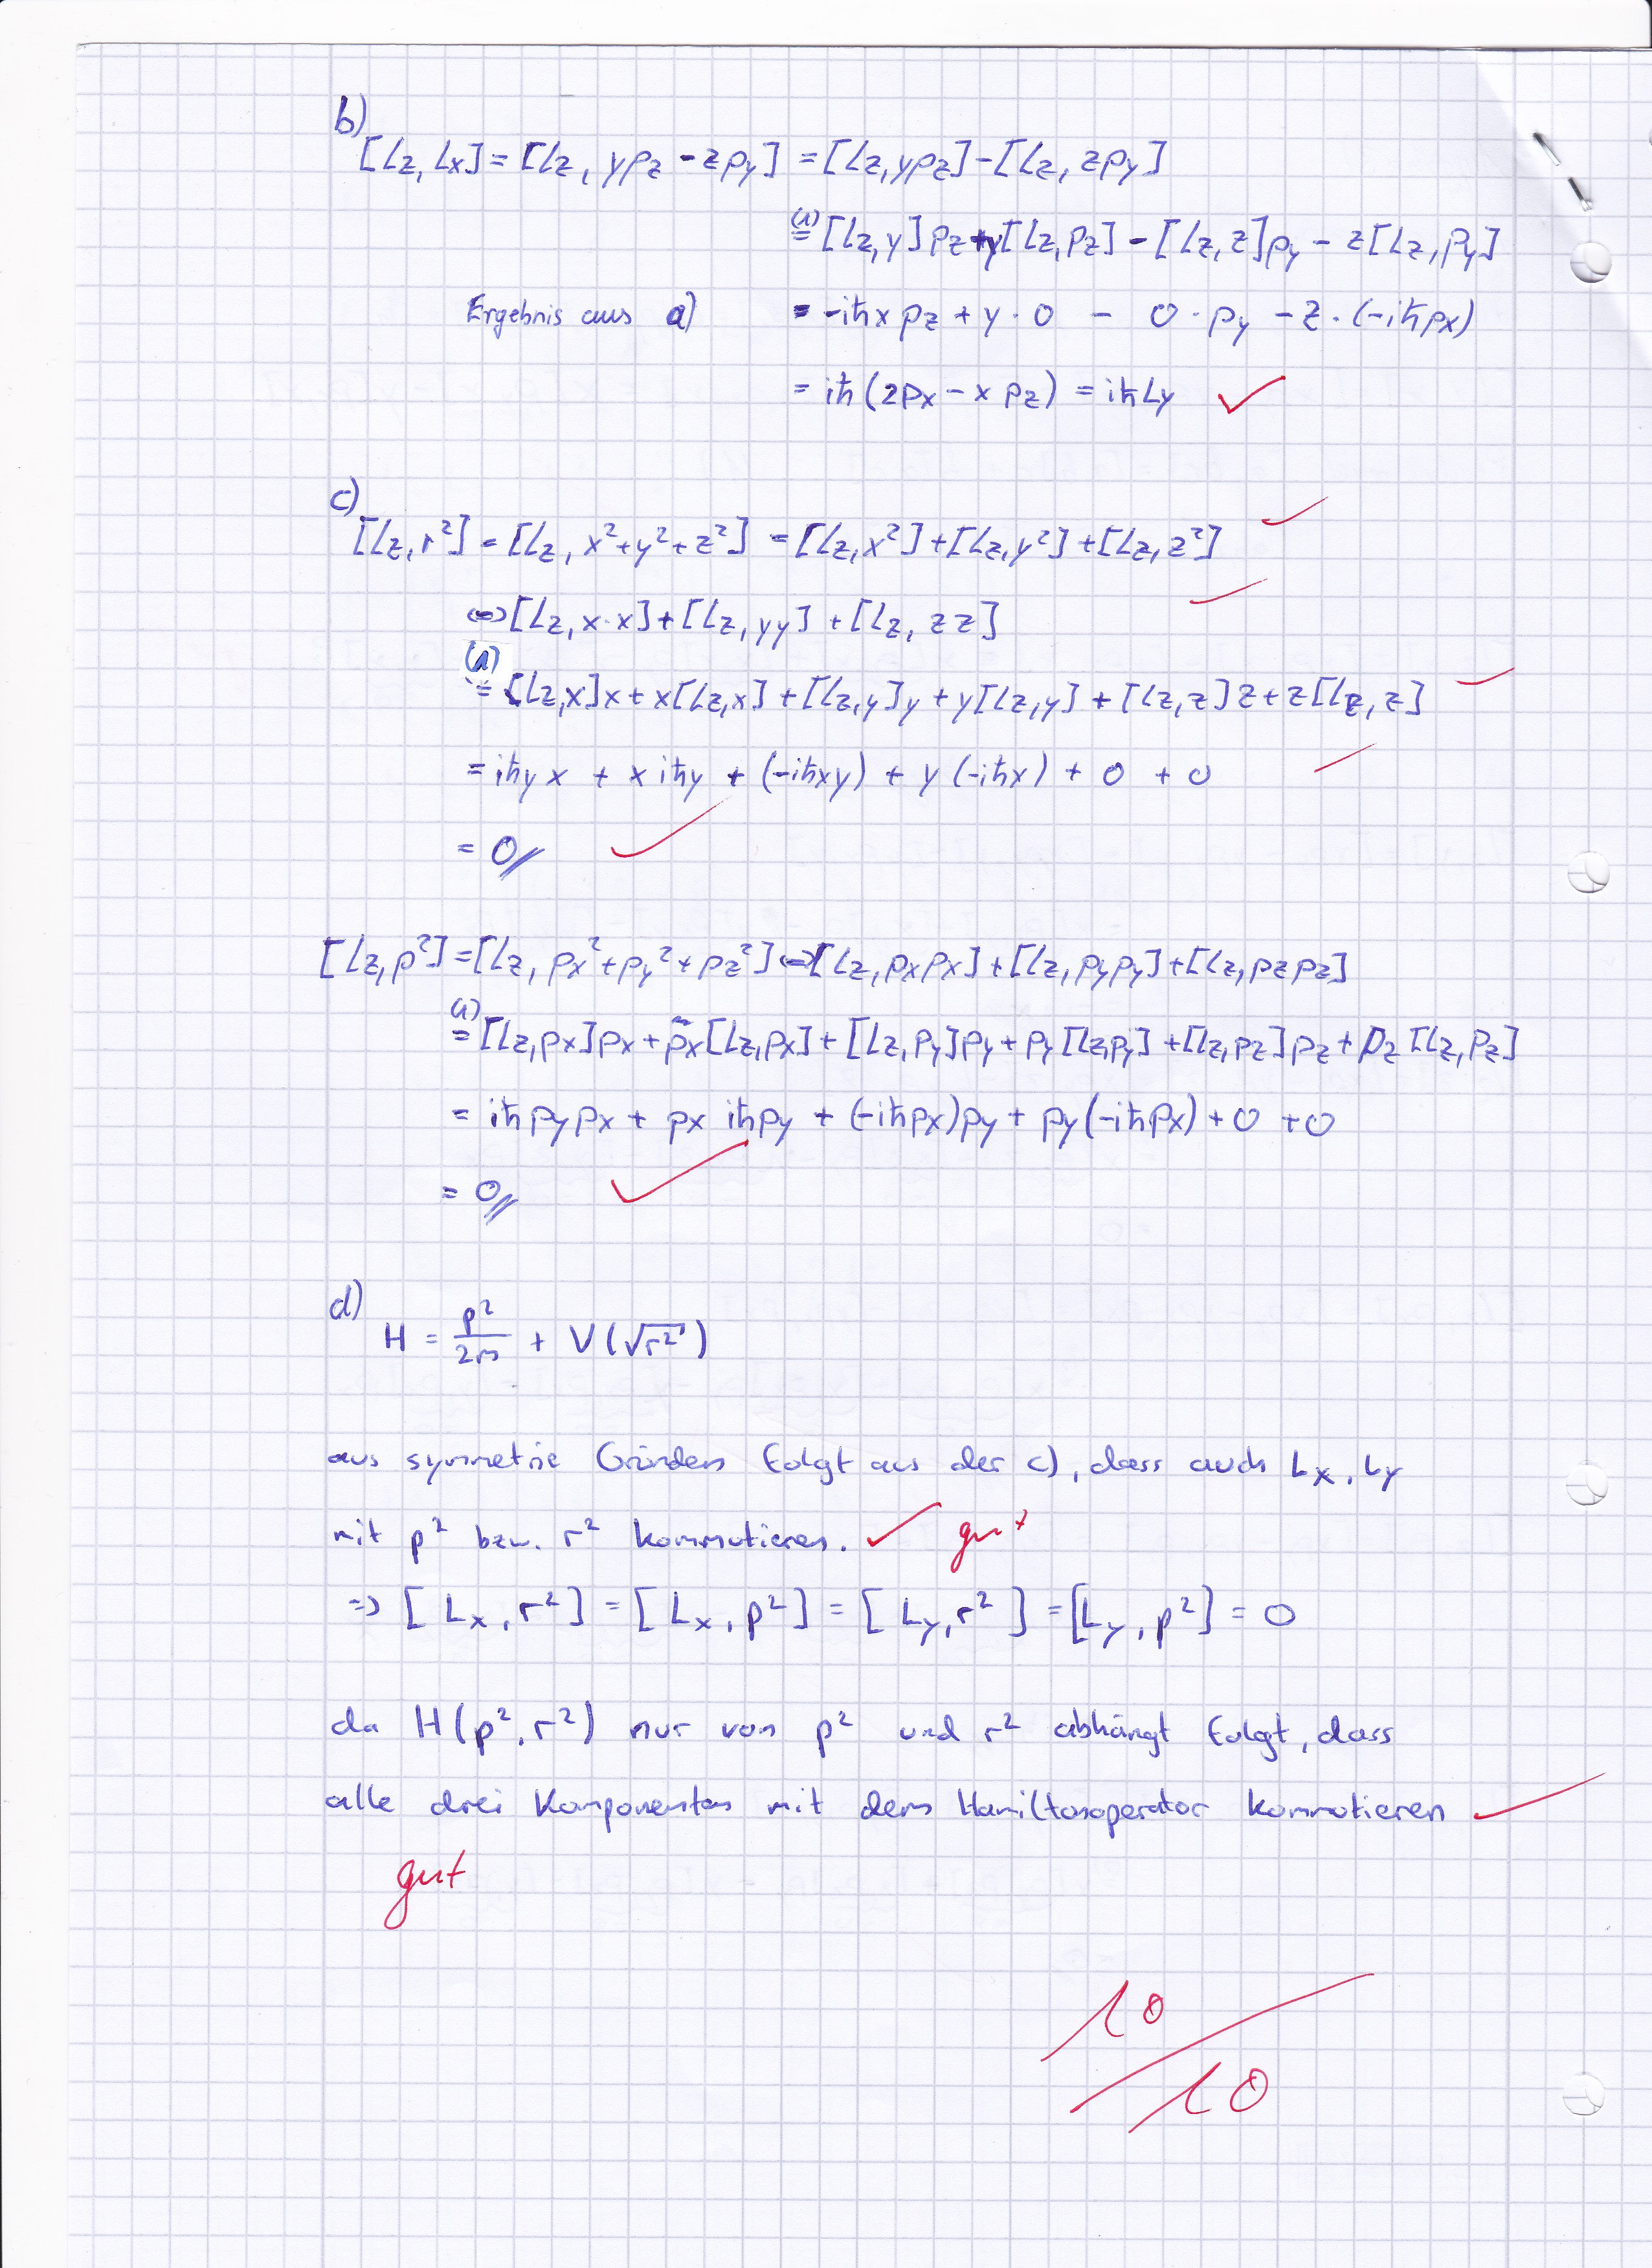 b)
[Lz, Lx] = [Lz, ypz - zpy] = [Lz, ypz] - [Lz, zpy]
(1)
= [Lz, y]pz + y[Lz, pz] - [Lz, z]py - z[Lz, py]
Ergebnis aus a) = -iħxpz + y · 0 - 0 · py - z · (-iħpx)
= iħ(zpx - xpz) = iħLy ✓
c)
[Lz, r²] = [Lz, x²+y²+z²] = [Lz, x²] + [Lz, y²] + [Lz, z²] ✓
⇔ [Lz, x·x] + [Lz, yy] + [Lz, zz] ✓
(1)
= [Lz,x]x + x[Lz,x] + [Lz,y]y + y[Lz,y] + [Lz,z]z + z[Lz,z] ✓
= iħyx + xiħy + (-iħxy) + y(-iħx) + 0 + 0 ✓
= 0 ✓
[Lz, p²] = [Lz, px²+py²+pz²] ⇔ [Lz, pxpx] + [Lz, pypy] + [Lz, pzpz]
(1)
= [Lz,px]px + px[Lz,px] + [Lz,py]py + py[Lz,py] + [Lz,pz]pz + pz[Lz,pz]
= iħpypx + px iħpy + (-iħpx)py + py(-iħpx) + 0 + 0
= 0 ✓
d)
H = p²/2m + V(√r²)
aus symmetrie Gründen folgt aus der c), dass auch Lx, Ly
mit p² bzw. r² kommutieren. ✓ gut
=> [Lx, r²] = [Lx, p²] = [Ly, r²] = [Ly, p²] = 0
da H(p², r²) nur von p² und r² abhängt folgt, dass
alle drei Komponenten mit dem Hamiltonoperator kommutieren ✓
gut
10
/10